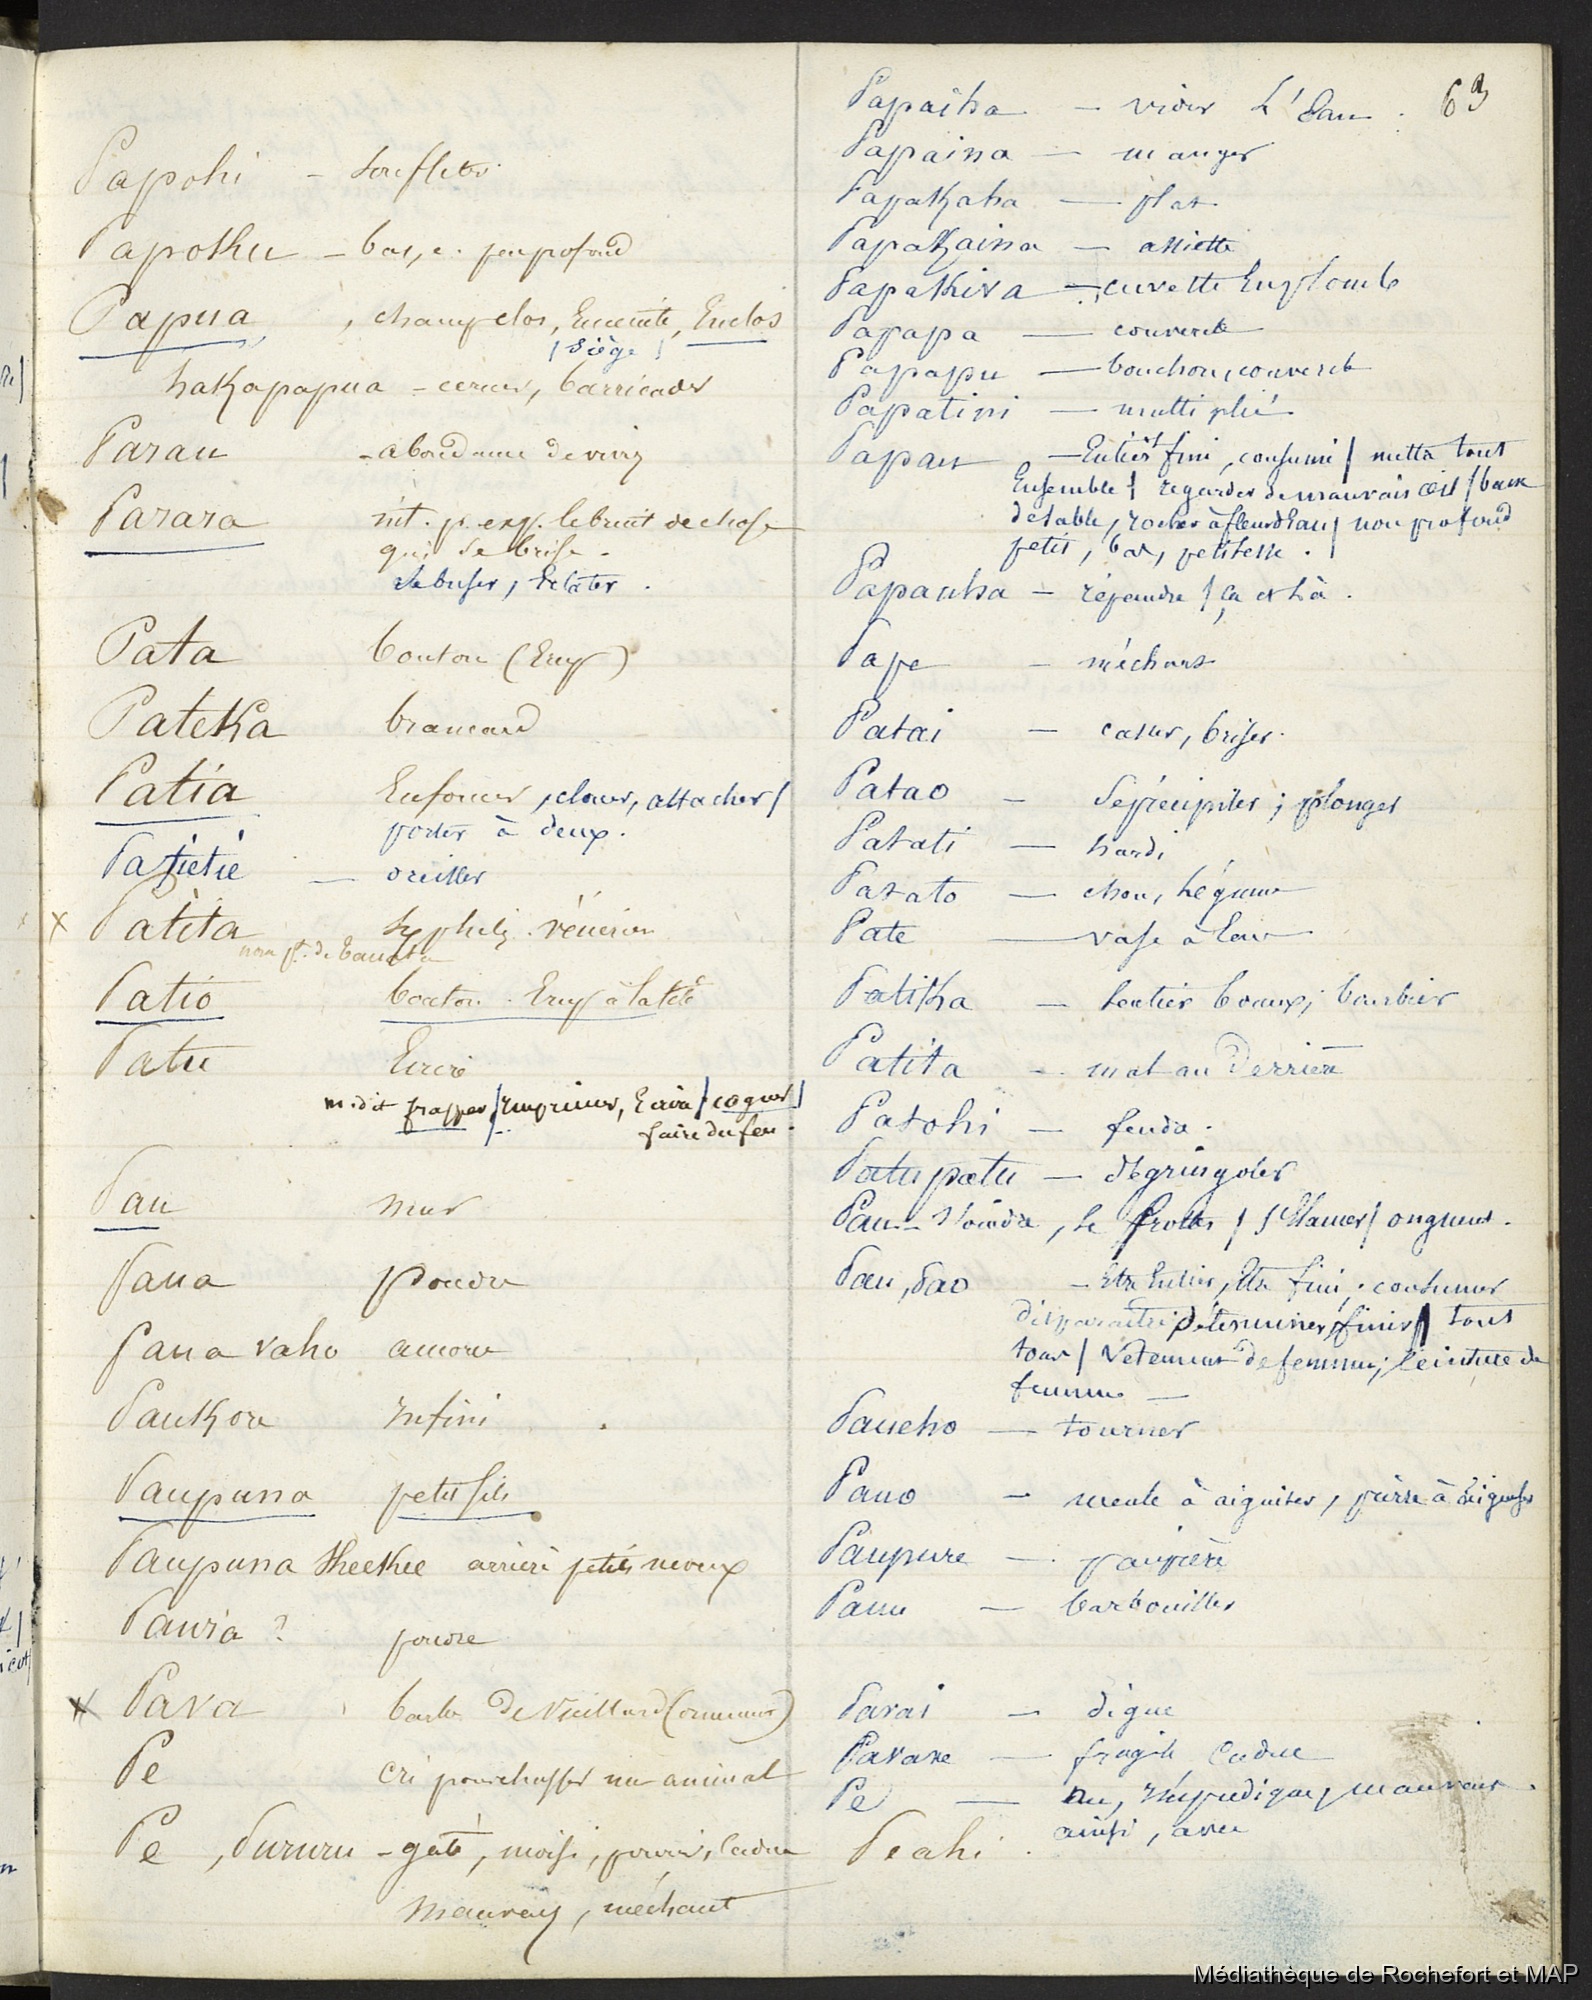 63
Papohi - souffleter
Papoku - bas, e. peu profond
Papua , champ clos, Enceinte, Enclos
/ siège /
hakapapua - cerner, barricader
Parau - abondance de vivres
Parara int. p. exp. le bruit de chose
qui se brise.
se briser, Eclater.
Pata bouton (Erup)
Pateka brancard
Patia Enfoncer, clouer, attacher /
porter à deux.
Patietie — oreiller
x Patita syphilis. vénérien
Patio bouton. Erup à la tête
Patu Ecrire
m. dit frapper / Imprimer, Ecrire / cogner /
faire du feu.
Pau mur
Paua poudre
Paua vaho amorce
Paukore Infini
Paupuna petit fils
Paupuna Keekee arrière petits neveux
Paura ? poudre
x Pava barbe de vieillard (ornement)
Pe Cri pour chasser un animal
Pe, Pururu - gâté, moisi, pourri, caduc
mauvais, méchant
Papaiha - vider L'Eau.
Papaina — manger
Papakaha — plat
Papakaina — assiette
Papakiva — cuvette En plomb
Papapa — couvercle
Papapu — bouchon, couvercle
Papatini — multiplié
Papau — Entier, fini, consumé / mettre tout
Ensemble / regarder de mauvais œil / banc
de sable, rocher à fleur d'Eau / non profond
petit, bas, petitesse.
Papauha - répandre / çà et là.
Pape - méchant
Patai — casser, briser.
Patao - se précipiter ; plonger
Patati — hardi
Patato — chou, Légume
Pate — vase à Eau
Patika - sentier boueux ; bourbier
Patita - mal au derrière
Patohi — fendre.
Patupatu — dégringoler
Pau - s'oindre, se frotter / onguent.
Pau, Pao - Etre Entier, Etre fini, consumer
disparaître, déterminer, finir / tout
tour / Vêtement de femme ; Ceinture de
femme —
Paueho — tourner
Pauo - meule à aiguiser, pierre à aiguiser
Paupure — paupière
Pauu — barbouiller
Pavai — digue
Pavave — fragile Caduc
Pe — nu, impudique, mauvais.
ainsi, avec
Peahi.
Médiathèque de Rochefort et MAP